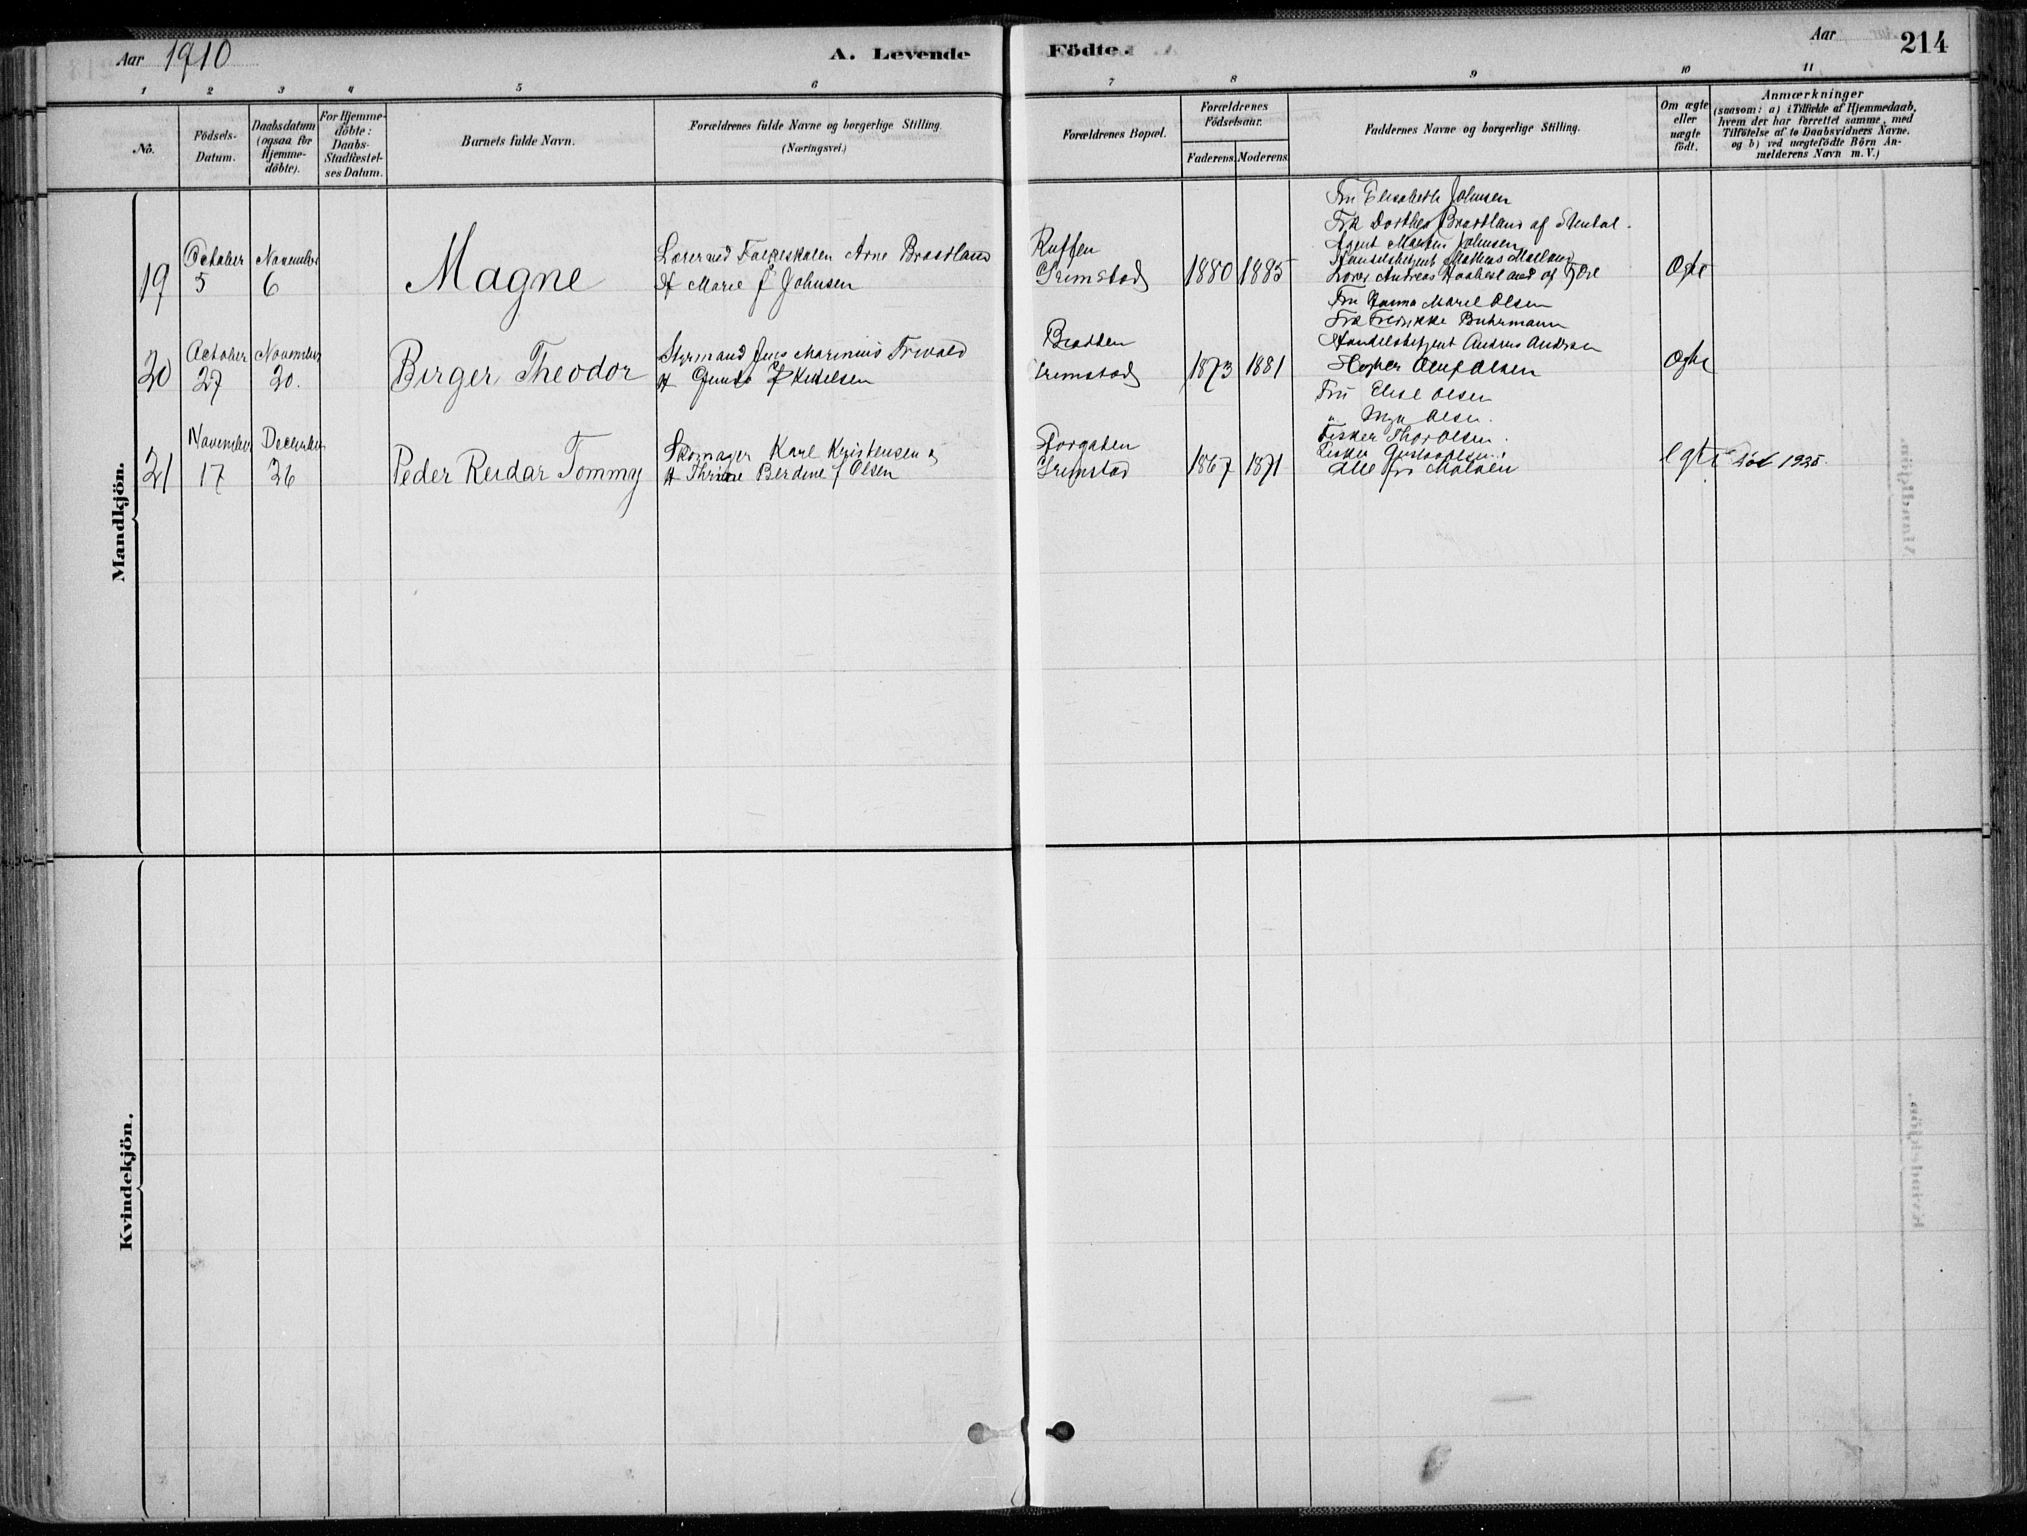 Aar 1910
A. Levende Födte.
Aar
214
1 2 3 4 5 6 7 8 9 10 11
No.
Födsels-
Datum.
Daabsdatum
(ogsaa for
Hjemme-
döbte).
For Hjemme-
döbte:
Daabs-
Stadfæstel-
ses Datum.
Barnets fulde Navn.
Forældrenes fulde Navne og borgerlige Stilling.
(Næringsvei.)
Forældrenes Bopæl.
Forældrenes
Födselsaar.
Faderens. Moderens.
Faddernes Navne og borgerlige Stilling.
Om ægte
eller
uægte
födt.
Anmærkninger
(saasom: a) i Tilfælde af Hjemmedaab,
hvem der har forrettet samme, med
Tilföielse af to Daabsvidners Navne.
og b) ved uægtefödte Börn An-
melderens Navn m. V.)
Mandkjön.
19
October
5
November
6
Magne
Lærer ved Folkeskolen Arne Brastland
H Marie f Johnsen
Grimstad
1880 1885
Fru Elisabeth Johnsen
Frk Dorthea Brastland af Stendal.
Agent Martin Johnsen
Handelsbetjent Mathias Mæland
Lærer Andreas
Ogte
20
October
27
November
20.
Birger Theodor
Styrmand Jens Marinius Trivold
H Gunda f Kittelsen
Bratten
Grimstad
1873 1881
Fru Marie Olsen
Frk Fredrikke Buhrmann
Handelsbetjent Anders Andersen
Olsen
Ogte
21
November
17
December
26
Peder Reidar Tommy
Skomager Karl Kristensen og
H Thrine Berdine f Olsen
Storgaten
Grimstad
1867 1871
Fru Elise Olsen
" Inga Olsen.
Fisker Thor Olsen.
Fisker Gustav Olsen.
alle fra Maløen
egte
død 1925.
Kvindekjön.